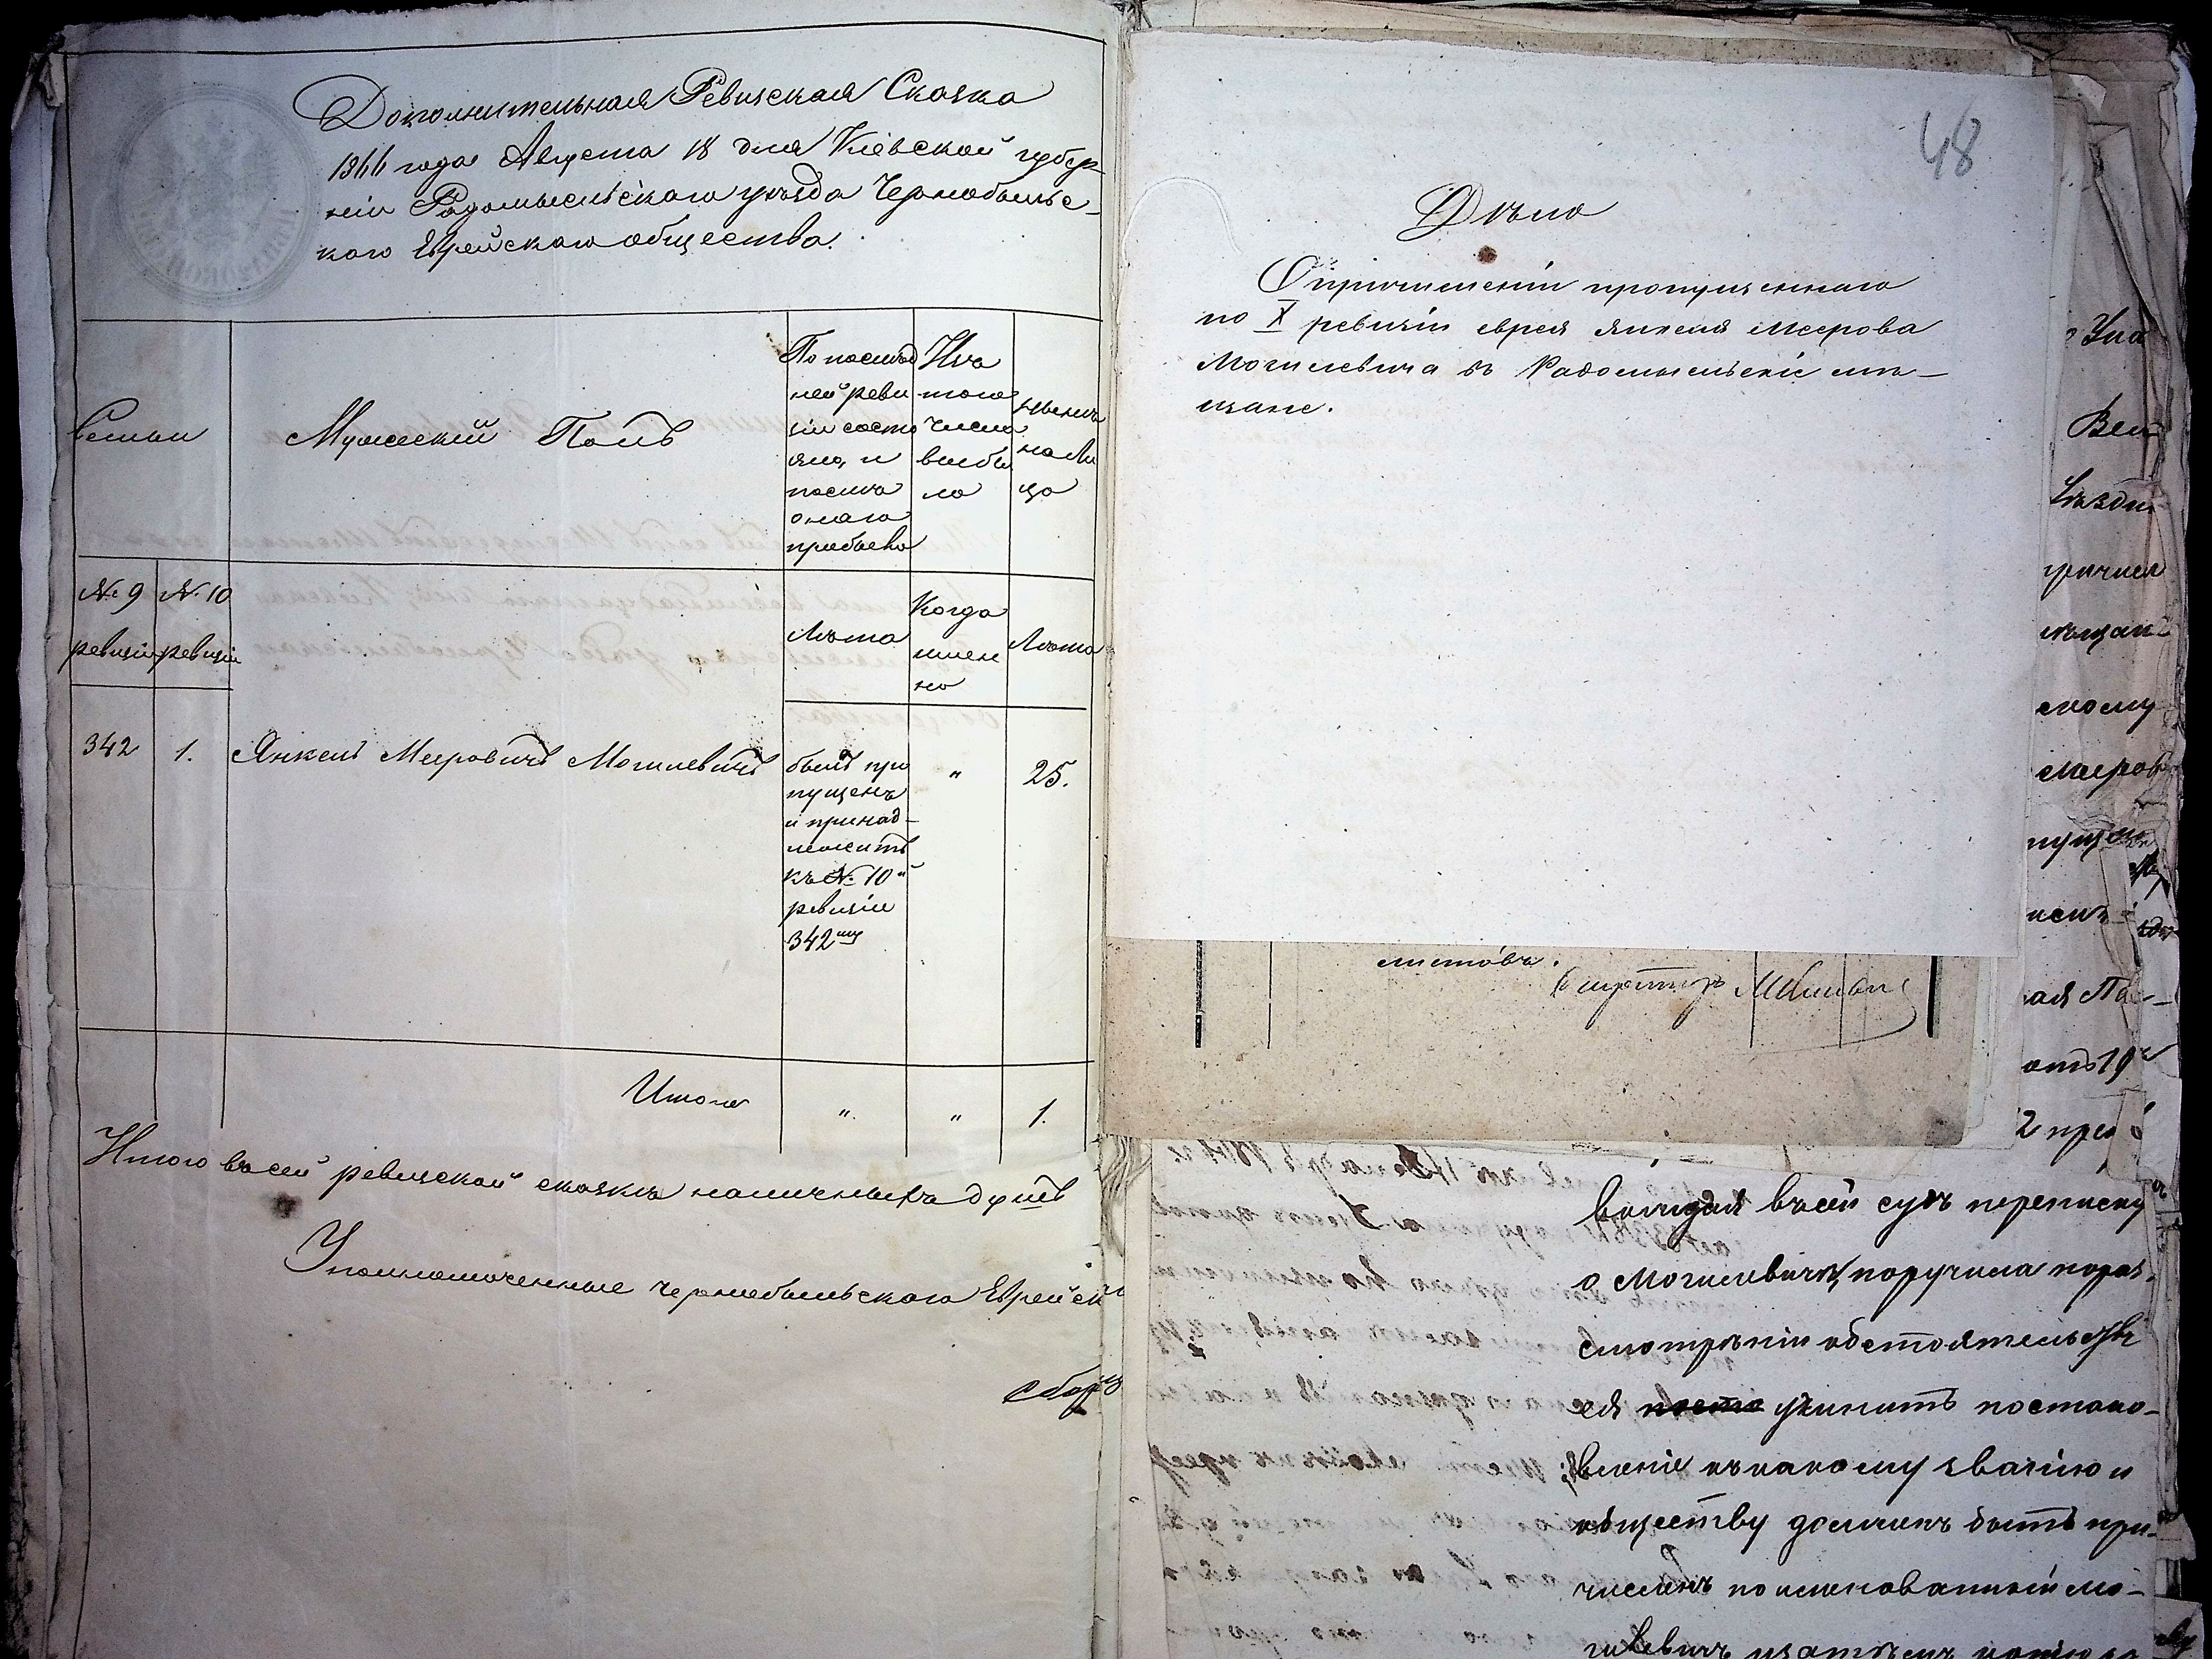 Дополнительная Ревизская Сказка
1866 года Августа 18 дня Кіевской губер-
ніи Радомысльскаго уѣзда Чернобыльс-
каго Еврейскаго общества.
Семьи
Мужескій Полъ
По послѣд
ней реви
зіи состо
яло, и
послѣ
онаго
прибыло
Изъ
того
числа
выбы
ло
Нынѣ
на ли
цо
№ 9
ревизіи
№ 10
ревизіи
Лѣта
Когда
имен
но
Лѣта
342
1.
Янкель Мееровичъ Могилевичъ
былъ про
пущенъ
и принад-
лежитъ
къ № 10й
ревизіи
342му
"
25.
Итого
"
"
1.
Итого въ сей ревизской сказкѣ наличныхъ душъ
Уполномоченные Чернобыльскаго Еврейск
48
Дѣло
О причисленіи пропущеннаго
по X ревизіи еврея Янкеля Меерова
Могилевича въ Радомысльскіе мѣ-
щане.
листовъ.
Вел
уѣздн
причисл
мѣщан
скому
Меров
пущен
ая Па-
отъ 19
2 пре
вошедшая въ сей судъ переписку
о Могилевичѣ, поручила пораз-
смотрѣніи обстоятельствъ
ея учинить постано-
вленіе къ какому званію и
обществу долженъ быть при-
численъ поименованный Мо-
гилевичъ